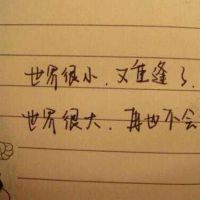 世界很小,又重逢了,
世界很大,再也不会